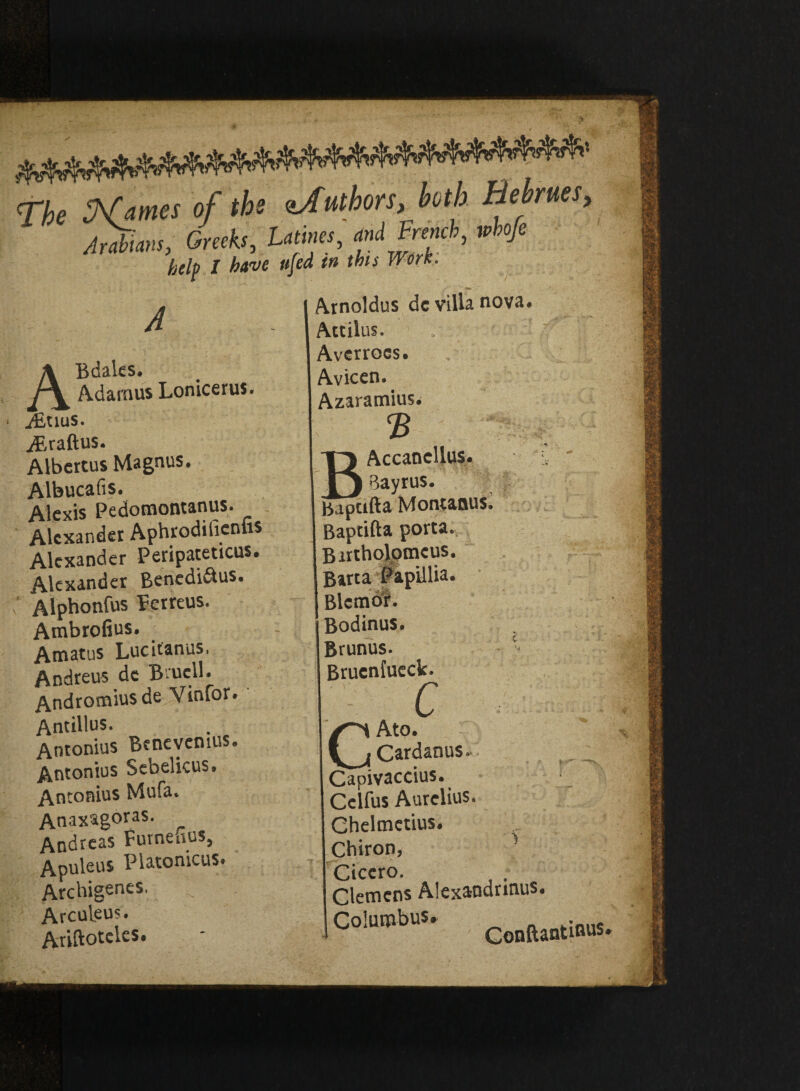 The Names of the Authors, both Hebrues,
Arabians, Greeks, Latines, and French, whoſe
help I have uſed in this Work.
A
ABdales.
Adamus Lonicerus.
Ætius.
Æraſtus.
Albertus Magnus.
Albucaſis.
Alexis Pedomontanus.
Alexander Aphrodiſienſis
Alexander Peripateticus.
Alexander Benedictus.
Alphonſus Ferreus.
Ambroſius.
Amatus Lucitanus.
Andreus de Bruell.
Andromius de Vinſor.
Antillus.
Antonius Benevenius.
Antonius Sebelicus.
Antonius Muſa.
Anaxagoras.
Andreas Furneſius,
Apuleus Platonicus.
Archigenes.
Arculeus.
Ariſtoteles.
Arnoldus de villa nova.
Attilus.
Averroes.
Avicen.
Azaramius.
B
BAccanellus.
Bayrus.
Baptiſta Montanus.
Baptiſta porta.
Bartholomeus.
Barta Papillia.
Blemor.
Bodinus.
Brunus.
Bruenſueck.
C
CAto.
Cardanus.
Capivaccius.
Celſus Aurelius.
Chelmetius.
Chiron,
Cicero.
Clemens Alexandrinus.
Columbus.
Conſtantinus.